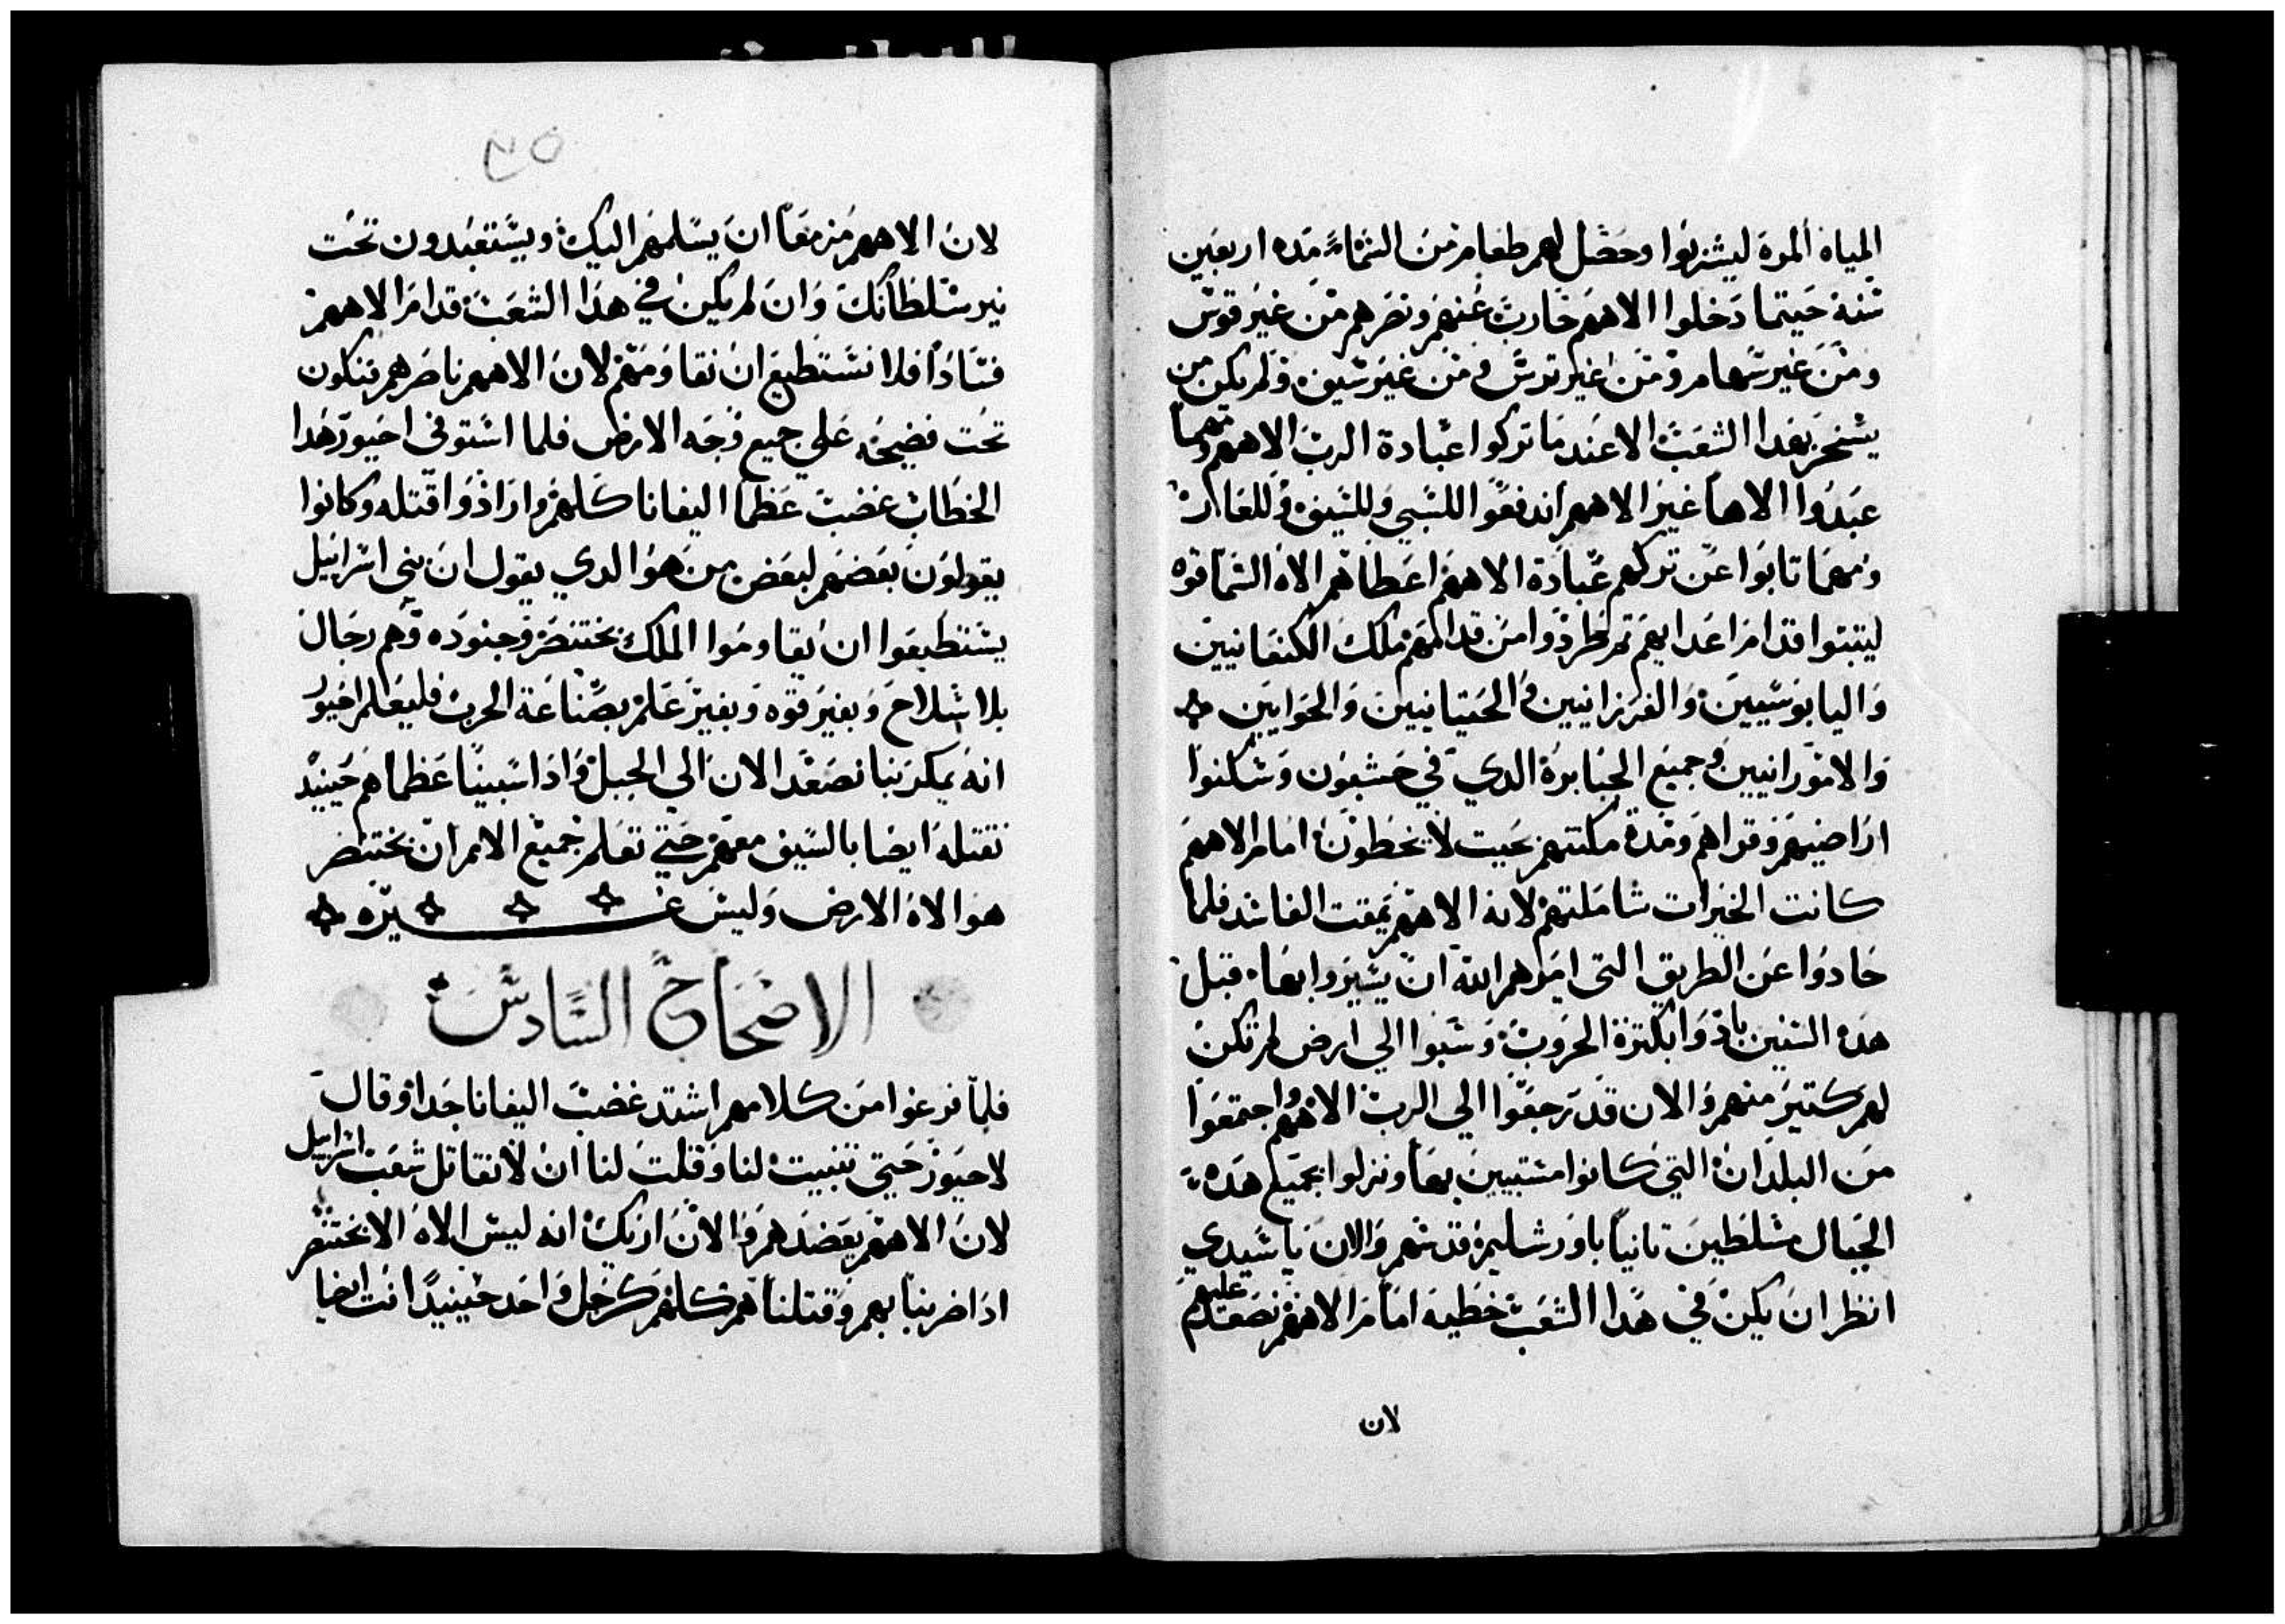 المياه المرة ليشربوا وحصل لهم طعام من السماء مده اربعين
سنة حيتما دخلوا الاههم حارب عنهم ونصرهم من غير قوس
ومن غير سهام ومن غير ترس ومن غير سيف ولم يكن من
يسخر بهدا الشعب الا عند ما تركوا عبادة الرب الاههم ومهما
عبدوا الاها غير الاههم اندفعوا للسبي وللسيف وللعار
ومهما تابوا عن تركهم عبادة الاههم اعطاهم الاه السما قوه
ليتبتوا قدام اعدايهم تم طردوا من قدامهم ملك الكنعانيين
واليابوسيين والفرزانيين والحيتانيين والحوايين
والامورانيين وجميع الجبابرة الدي في حشبون وسكنوا
اراضيهم وقراهم ومدة مكتهم بحيت لا يخطون امام الاههم
كانت الخيرات شاملتهم لانه الاههم يمقت الفاسد فلما
حادوا عن الطريق التي امرهم الله ان يسيروا بها قبل
هده السنين بادوا بكترة الحروب وسبوا الي ارض لم تكن
لهم كتير منهم والان قد رجعوا الي الرب الاههم واجتمعوا
من البلدان التي كانوا مشتتين بها ونزلوا بجميع هده
الجبال متسلطين تانيا باورشليم قدسهم والان يا سيدي
انظر ان يكن في هدا الشعب خطيه امام الاههم نصعد عليهم
لان
٢٥
لان الاههم مزمعا ان يسلمهم اليك ويستعبدون تحت
نير سلطانك وان لم يكن في هدا الشعب قدام الاههم
فسادا فلا نستطيع ان نقاومهم لان الاههم ناصرهم فنكون
تحت فضيحه علي جميع وجه الارض فلما استوفى احيور هدا
الخطاب غضب عظما اليفانا كلهم وارادوا قتله وكانوا
يقولون بعضهم لبعض من هو الدي يقول ان بني اسراييل
يستطيعوا ان يقاوموا الملك بختنصر وجنوده وهم رجال
بلا سلاح وبغير قوه وبغير علم بصناعة الحرب فليعلم احيور
انه يمكر بنا نصعد الان الي الجبل وادا سبينا عظماهم حينيد
نقتله ايضا بالسيف معهم حتي تعلم جميع الامم ان بختنصر
هو الاه الارض وليس غيره
الاصحاح السادس
فلما فرغوا من كلامهم اشتد غضب اليفانا جدا وقال
لاحيور حيتي تنبيت لنا وقلت لنا ان لا نقاتل شعب اسراييل
لان الاههم يعضدهم والان اريك انه ليس الاه الا بختنصر
ادا ضربنا بهم وقتلناهم كلهم كرجل واحد حينيدا انت ايضا